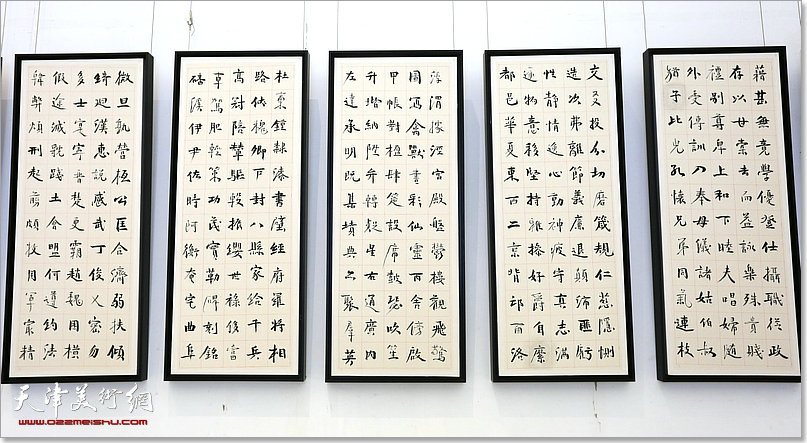 藉甚無竟學優登仕攝職從政
存以甘棠去而益詠樂殊貴賤
禮別尊卑上和下睦夫唱婦隨
外受傅訓入奉母儀諸姑伯叔
猶子比兒孔懷兄弟同氣連枝
交友投分切磨箴規仁慈隱惻
造次弗離節義廉退顛沛匪虧
性靜情逸心動神疲守真志滿
逐物意移堅持雅操好爵自縻
都邑華夏東西二京背邙面洛
浮渭據涇宮殿盤鬱樓觀飛驚
圖寫禽獸畫彩仙靈丙舍傍啟
甲帳對楹肆筵設席鼓瑟吹笙
升階納陛弁轉疑星右通廣內
左達承明既集墳典亦聚群英
杜稾鍾隸漆書壁經府羅將相
路俠槐卿戶封八縣家給千兵
高冠陪輦驅轂振纓世祿侈富
車駕肥輕策功茂實勒碑刻銘
磻溪伊尹佐時阿衡奄宅曲阜
微旦孰營桓公匡合濟弱扶傾
綺迴漢惠說感武丁俊乂密勿
多士寔寧晉楚更霸趙魏困橫
假途滅虢踐土會盟何遵約法
韓弊煩刑起翦頗牧用軍最精
天津美術網
www.022meishu.com